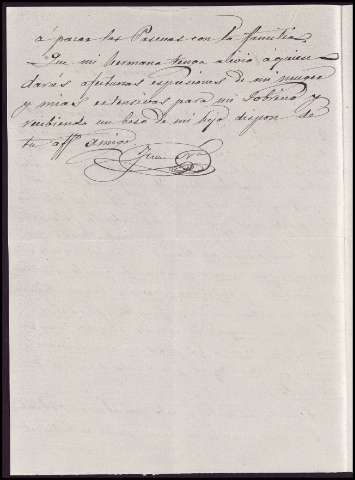 á pasar las Pascuas con la familia.
Que mi hermana tenga alivio á quien
darás afectuosas espresiones de mi
y mias estensivas para mi Sobrino y
recibiendo un beso de mi hijo dispon de
tu aff.º amigo